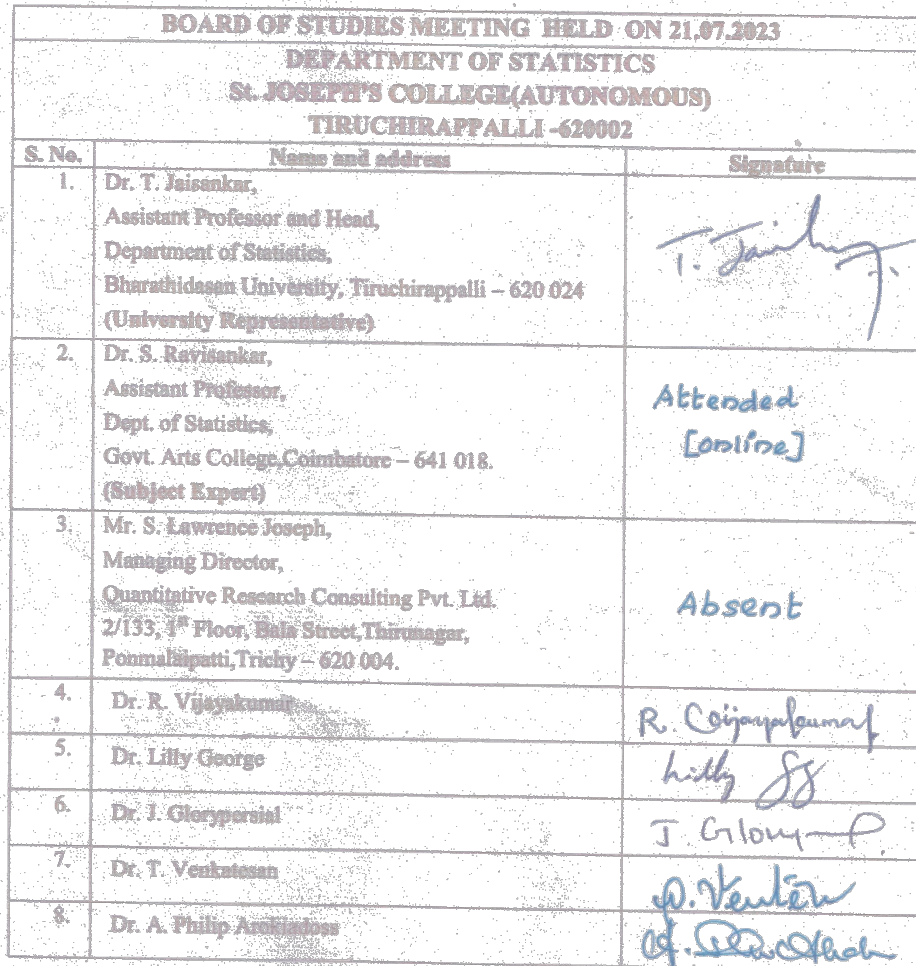 BOARD OF STUDIES MEETING HELD ON 21.07.2023
DEPARTMENT OF STATISTICS
St. JOSEPH'S COLLEGE(AUTONOMOUS)
TIRUCHIRAPPALLI -620002
S. No. Name and address Signature
1. Dr. T. Jaisankar,
Assistant Professor and Head,
Department of Statistics,
Bharathidasan University, Tiruchirappalli – 620 024
(University Representative)
T.
2. Dr. S. Ravisankar,
Assistant Professor,
Dept. of Statistics,
Govt. Arts College,Coimbatore – 641 018.
(Subject Expert)
Attended
[online]
3. Mr. S. Lawrence Joseph,
Managing Director,
Quantitative Research Consulting Pvt. Ltd.
2/133, 1st Floor, Bala Street,Thirunagar,
Ponmalaipatti,Trichy – 620 004.
Absent
4. Dr. R. Vijayakumar R. Vijayakumar
5. Dr. Lilly George Lilly
6. Dr. J. Glorypersial J.
7. Dr. T. Venkatesan
8. Dr. A. Philip Arokiadoss